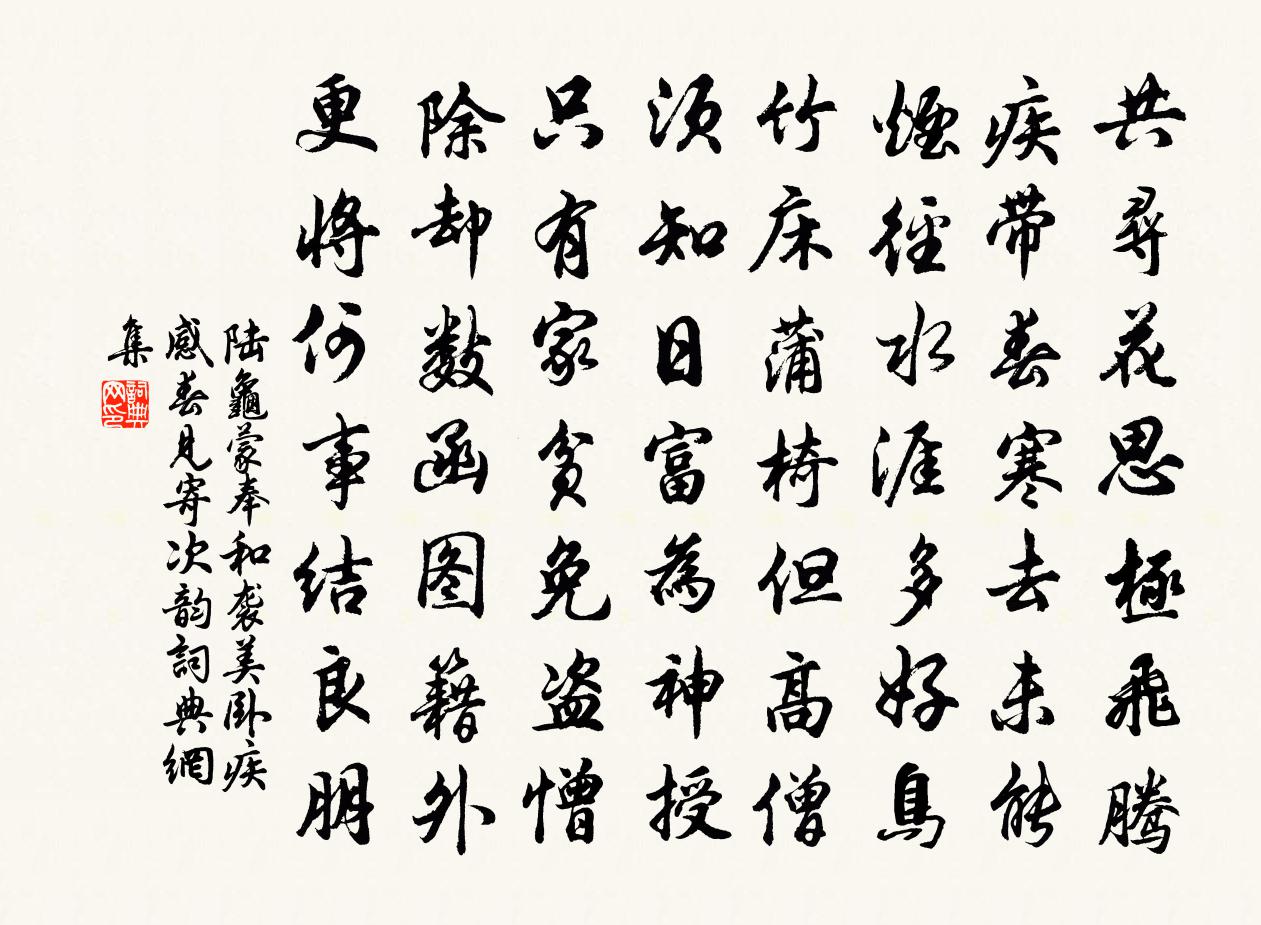 共尋花思極飛騰
疾带春寒去未能
煙徑水涯多好鳥
竹床蒲椅但高僧
須知日富為神授
只有家貧免盗憎
除却數函图籍外
更將何事結良朋
陆龜蒙奉和袭美卧疾
感春見寄次韵詞典網
集
詞典网印